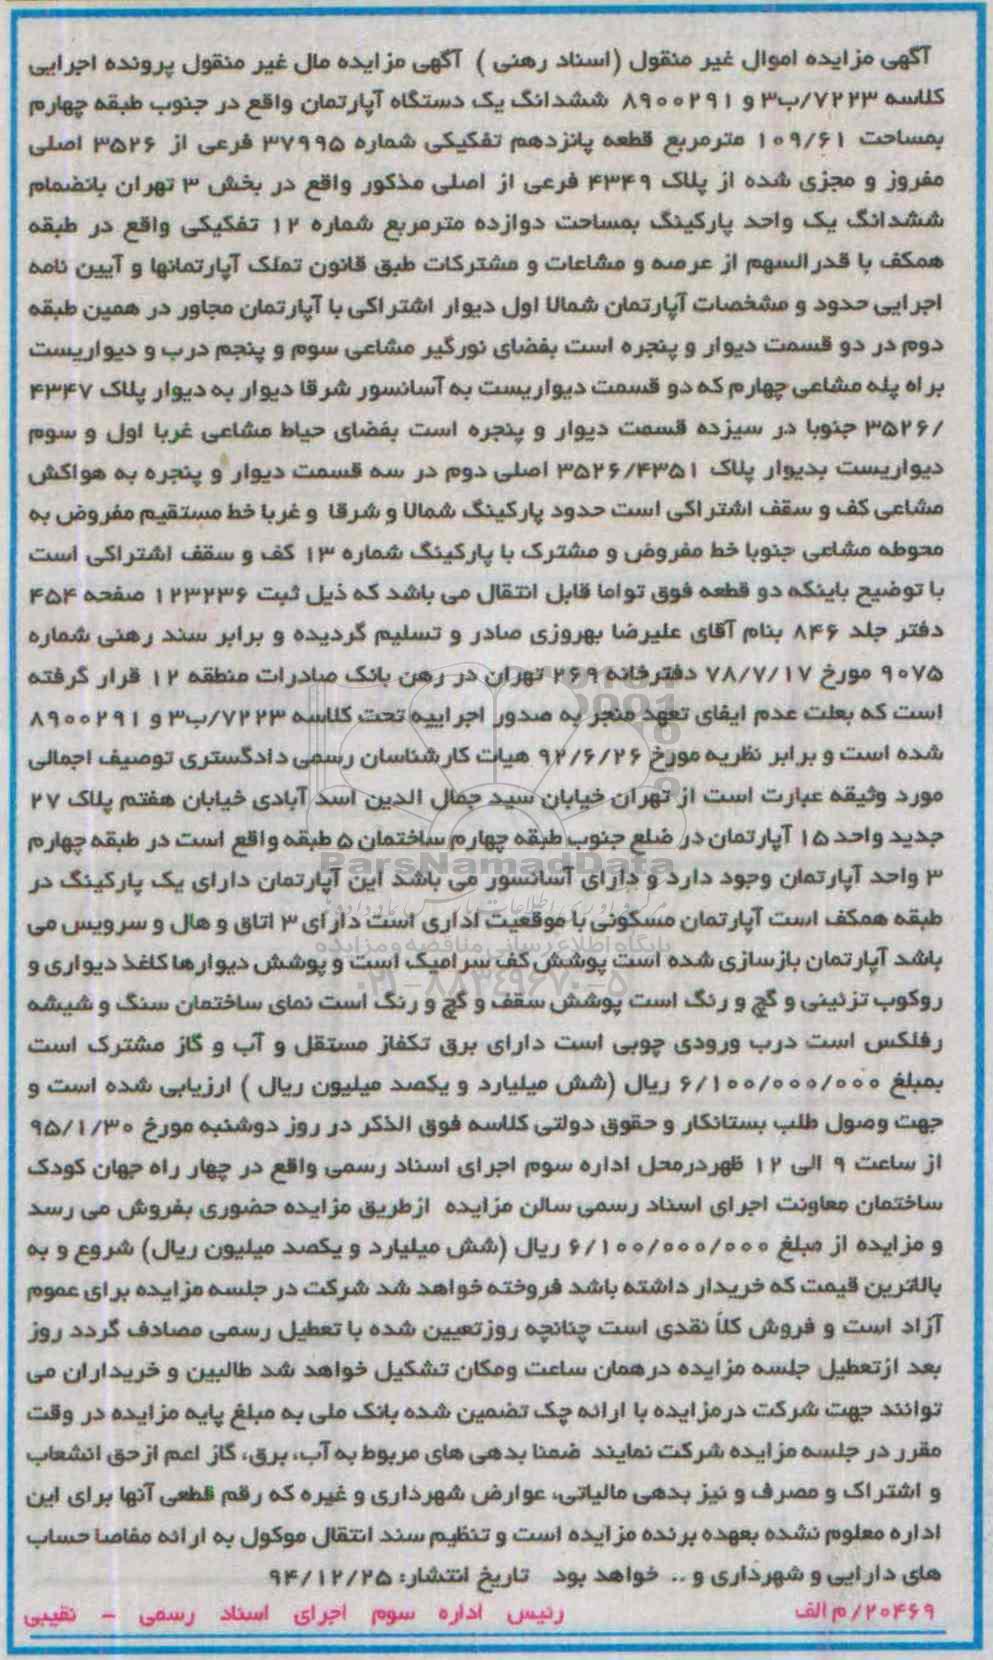 آگهی مزایده اموال غیر منقول (اسناد رهنی ) آگهی مزایده مال غیر منقول پرونده اجرایی
کلاسه ۷۲۲۳/ب۳ و ۸۹۰۰۲۹۱ ششدانگ یک دستگاه آپارتمان واقع در جنوب طبقه چهارم
بمساحت ۱۰۹/۶۱ مترمربع قطعه پانزدهم تفکیکی شماره ۳۷۹۹۵ فرعی از ۳۵۲۶ اصلی
مفروز و مجزی شده از پلاک ۴۳۴۹ فرعی از اصلی مذکور واقع در بخش ۳ تهران بانضمام
ششدانگ یک واحد پارکینگ بمساحت دوازده مترمربع شماره ۱۲ تفکیکی واقع در طبقه
همکف با قدرالسهم از عرصه و مشاعات و مشترکات طبق قانون تملک آپارتمانها و آیین نامه
اجرایی حدود و مشخصات آپارتمان شمالا اول دیوار اشتراکی با آپارتمان مجاور در همین طبقه
دوم در دو قسمت دیوار و پنجره است بفضای نورگیر مشاعی سوم و پنجم درب و دیواریست
براه پله مشاعی چهارم که دو قسمت دیواریست به آسانسور شرقا دیوار به دیوار پلاک ۴۳۴۷
/۳۵۲۶ جنوبا در سیزده قسمت دیوار و پنجره است بفضای حیاط مشاعی غربا اول و سوم
دیواریست بدیوار پلاک ۳۵۲۶/۴۳۵۱ اصلی دوم در سه قسمت دیوار و پنجره به هواکش
مشاعی کف و سقف اشتراکی است حدود پارکینگ شمالا و شرقا و غربا خط مستقیم مفروض به
محوطه مشاعی جنوبا خط مفروض و مشترک با پارکینگ شماره ۱۳ کف و سقف اشتراکی است
با توضیح باینکه دو قطعه فوق تواما قابل انتقال می باشد که ذیل ثبت ۱۲۳۲۳۶ صفحه ۴۵۴
دفتر جلد ۸۴۶ بنام آقای علیرضا بهروزی صادر و تسلیم گردیده و برابر سند رهنی شماره
۹۰۷۵ مورخ ۷۸/۷/۱۷ دفترخانه ۲۶۹ تهران در رهن بانک صادرات منطقه ۱۲ قرار گرفته
است که بعلت عدم ایفای تعهد منجر به صدور اجراییه تحت کلاسه ۷۲۲۳/ب۳ و ۸۹۰۰۲۹۱
شده است و برابر نظریه مورخ ۹۲/۶/۲۶ هیات کارشناسان رسمی دادگستری توصیف اجمالی
مورد وثیقه عبارت است از تهران خیابان سید جمال الدین اسد آبادی خیابان هفتم پلاک ۲۷
جدید واحد ۱۵ آپارتمان در ضلع جنوب طبقه چهارم ساختمان ۵ طبقه واقع است در طبقه چهارم
۳ واحد آپارتمان وجود دارد و دارای آسانسور می باشد این آپارتمان دارای یک پارکینگ در
طبقه همکف است آپارتمان مسکونی با موقعیت اداری است دارای ۳ اتاق و هال و سرویس می
باشد آپارتمان بازسازی شده است پوشش کف سرامیک است و پوشش دیوارها کاغذ دیواری و
روکوب تزئینی و گچ و رنگ است پوشش سقف و گچ و رنگ است نمای ساختمان سنگ و شیشه
رفلکس است درب ورودی چوبی است دارای برق تکفاز مستقل و آب و گاز مشترک است
بمبلغ ۶/۱۰۰/۰۰۰/۰۰۰ ریال (شش میلیارد و یکصد میلیون ریال ) ارزیابی شده است و
جهت وصول طلب بستانکار و حقوق دولتی کلاسه فوق الذکر در روز دوشنبه مورخ ۹۵/۱/۳۰
از ساعت ۹ الی ۱۲ ظهردرمحل اداره سوم اجرای اسناد رسمی واقع در چهار راه جهان کودک
ساختمان معاونت اجرای اسناد رسمی سالن مزایده ازطریق مزایده حضوری بفروش می رسد
و مزایده از مبلغ ۶/۱۰۰/۰۰۰/۰۰۰ ریال (شش میلیارد و یکصد میلیون ریال) شروع و به
بالاترین قیمت که خریدار داشته باشد فروخته خواهد شد شرکت در جلسه مزایده برای عموم
آزاد است و فروش کلاً نقدی است چنانچه روزتعیین شده با تعطیل رسمی مصادف گردد روز
بعد ازتعطیل جلسه مزایده درهمان ساعت ومکان تشکیل خواهد شد طالبین و خریداران می
توانند جهت شرکت درمزایده با ارائه چک تضمین شده بانک ملی به مبلغ پایه مزایده در وقت
مقرر در جلسه مزایده شرکت نمایند ضمنا بدهی های مربوط به آب، برق، گاز اعم ازحق انشعاب
و اشتراک و مصرف و نیز بدهی مالیاتی، عوارض شهرداری و غیره که رقم قطعی آنها برای این
اداره معلوم نشده بعهده برنده مزایده است و تنظیم سند انتقال موکول به ارائه مفاصا حساب
های دارایی و شهرداری و .. خواهد بود تاریخ انتشار: ۹۴/۱۲/۲۵
۲۰۴۶۹/م الف رئیس اداره سوم اجرای اسناد رسمی - نقیبی
ParsNamadData
پایگاه اطلاع رسانی مناقصه و مزایده
۰۲۱-۸۸۳۴۹۶۷۰-۵